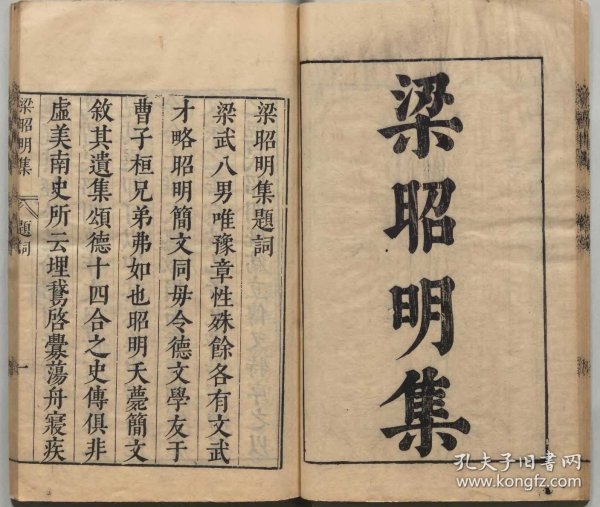 梁昭明集
梁昭明集題詞
梁武八男唯豫章性殊餘各有文武
才略昭明簡文同母令德文學友于
曹子桓兄弟弗如也昭明夭薨簡文
敘其遺集頌德十四合之史傳俱非
虛美南史所云埋鵞啓釁蕩舟寢疾
梁昭明集
題詞
一
孔夫子旧書网
www.kongfz.com